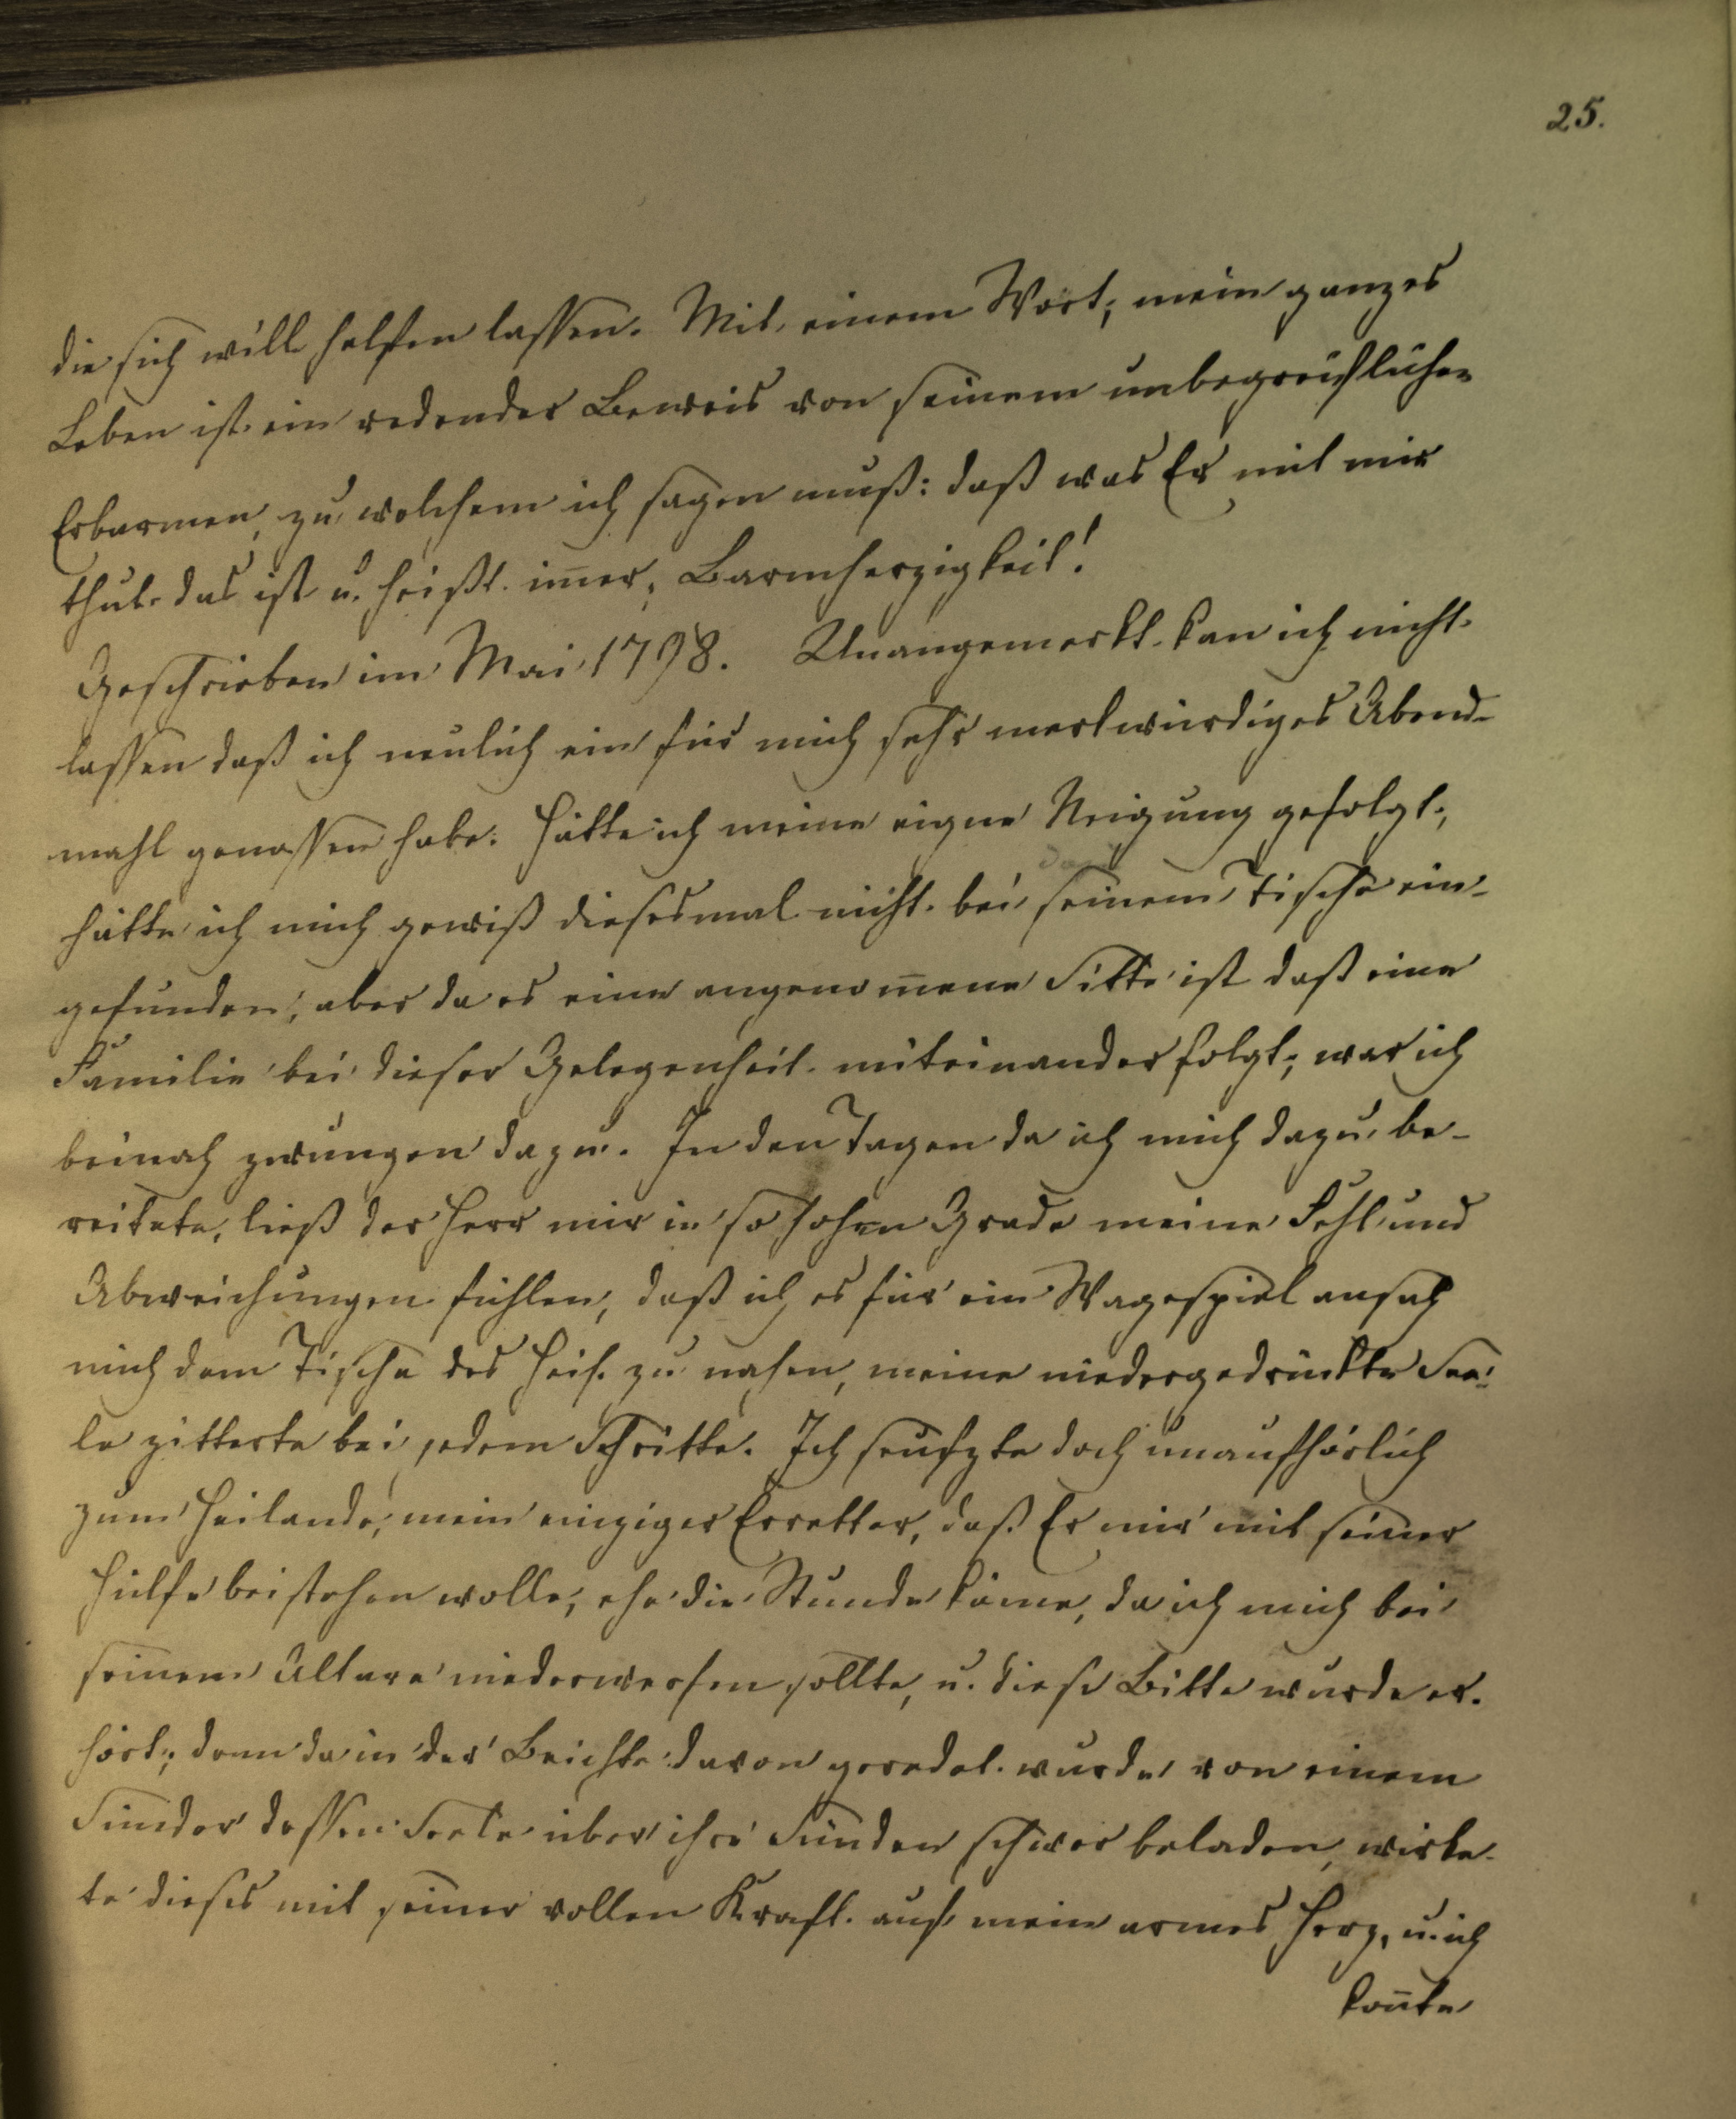 25.
die sich will helfen lassen. Mit einem Wort, mein ganzes
Leben ist ein redender Beweis von seinem unbegreiflichen
Erbarmen, zu welchem ich sagen muß: daß was Er mit mir
thut. das ist u. heißt im̅er, Barmherzigkeit!
Geschrieben im Mai 1798. Unangemerkt kan ich nicht
lassen daß ich neulich ein für mich sehr merkwürdiges Abend-
mahl genossen habe. Hätte ich meine eigne Neigung gefolgt,
hätte ich mich gewiß diesesmal nicht bei seinem Tische ein-
gefunden, aber da es eine angenom̅ene Sitte ist daß eine
Familie bei dieser Gelegenheit miteinander folgt, war ich
beinah zwungen dazu. In den Tagen da ich mich dazu be-
reitete, ließ der Herr mir in so hohen Grade meine Fehl und
Abweichungen fühlen, daß ich es für ein Wagespiel ansah
mich dem Tische des Heil. zu nahen, meine niedergedrückte See-
le zitterte bei jedem Schritte. Ich seufzte doch unaufhörlich
zum Heilande, mein einziger Erretter, daß Er mir mit seiner
Hülfe beistehen wolle, ehe die Stunde käme, da ich mich bei
seinem Altare niederwerfen sollte, u. diese Bitte wurde er-
hört, denn da in der Beichte davon geredet wurde von einem
Sünder dessen Seele über ihre Sünden schwer beladen, wirke-
te dieses mit seiner vollen Kraft auf mein armes Herz, u. ich
kon̅te